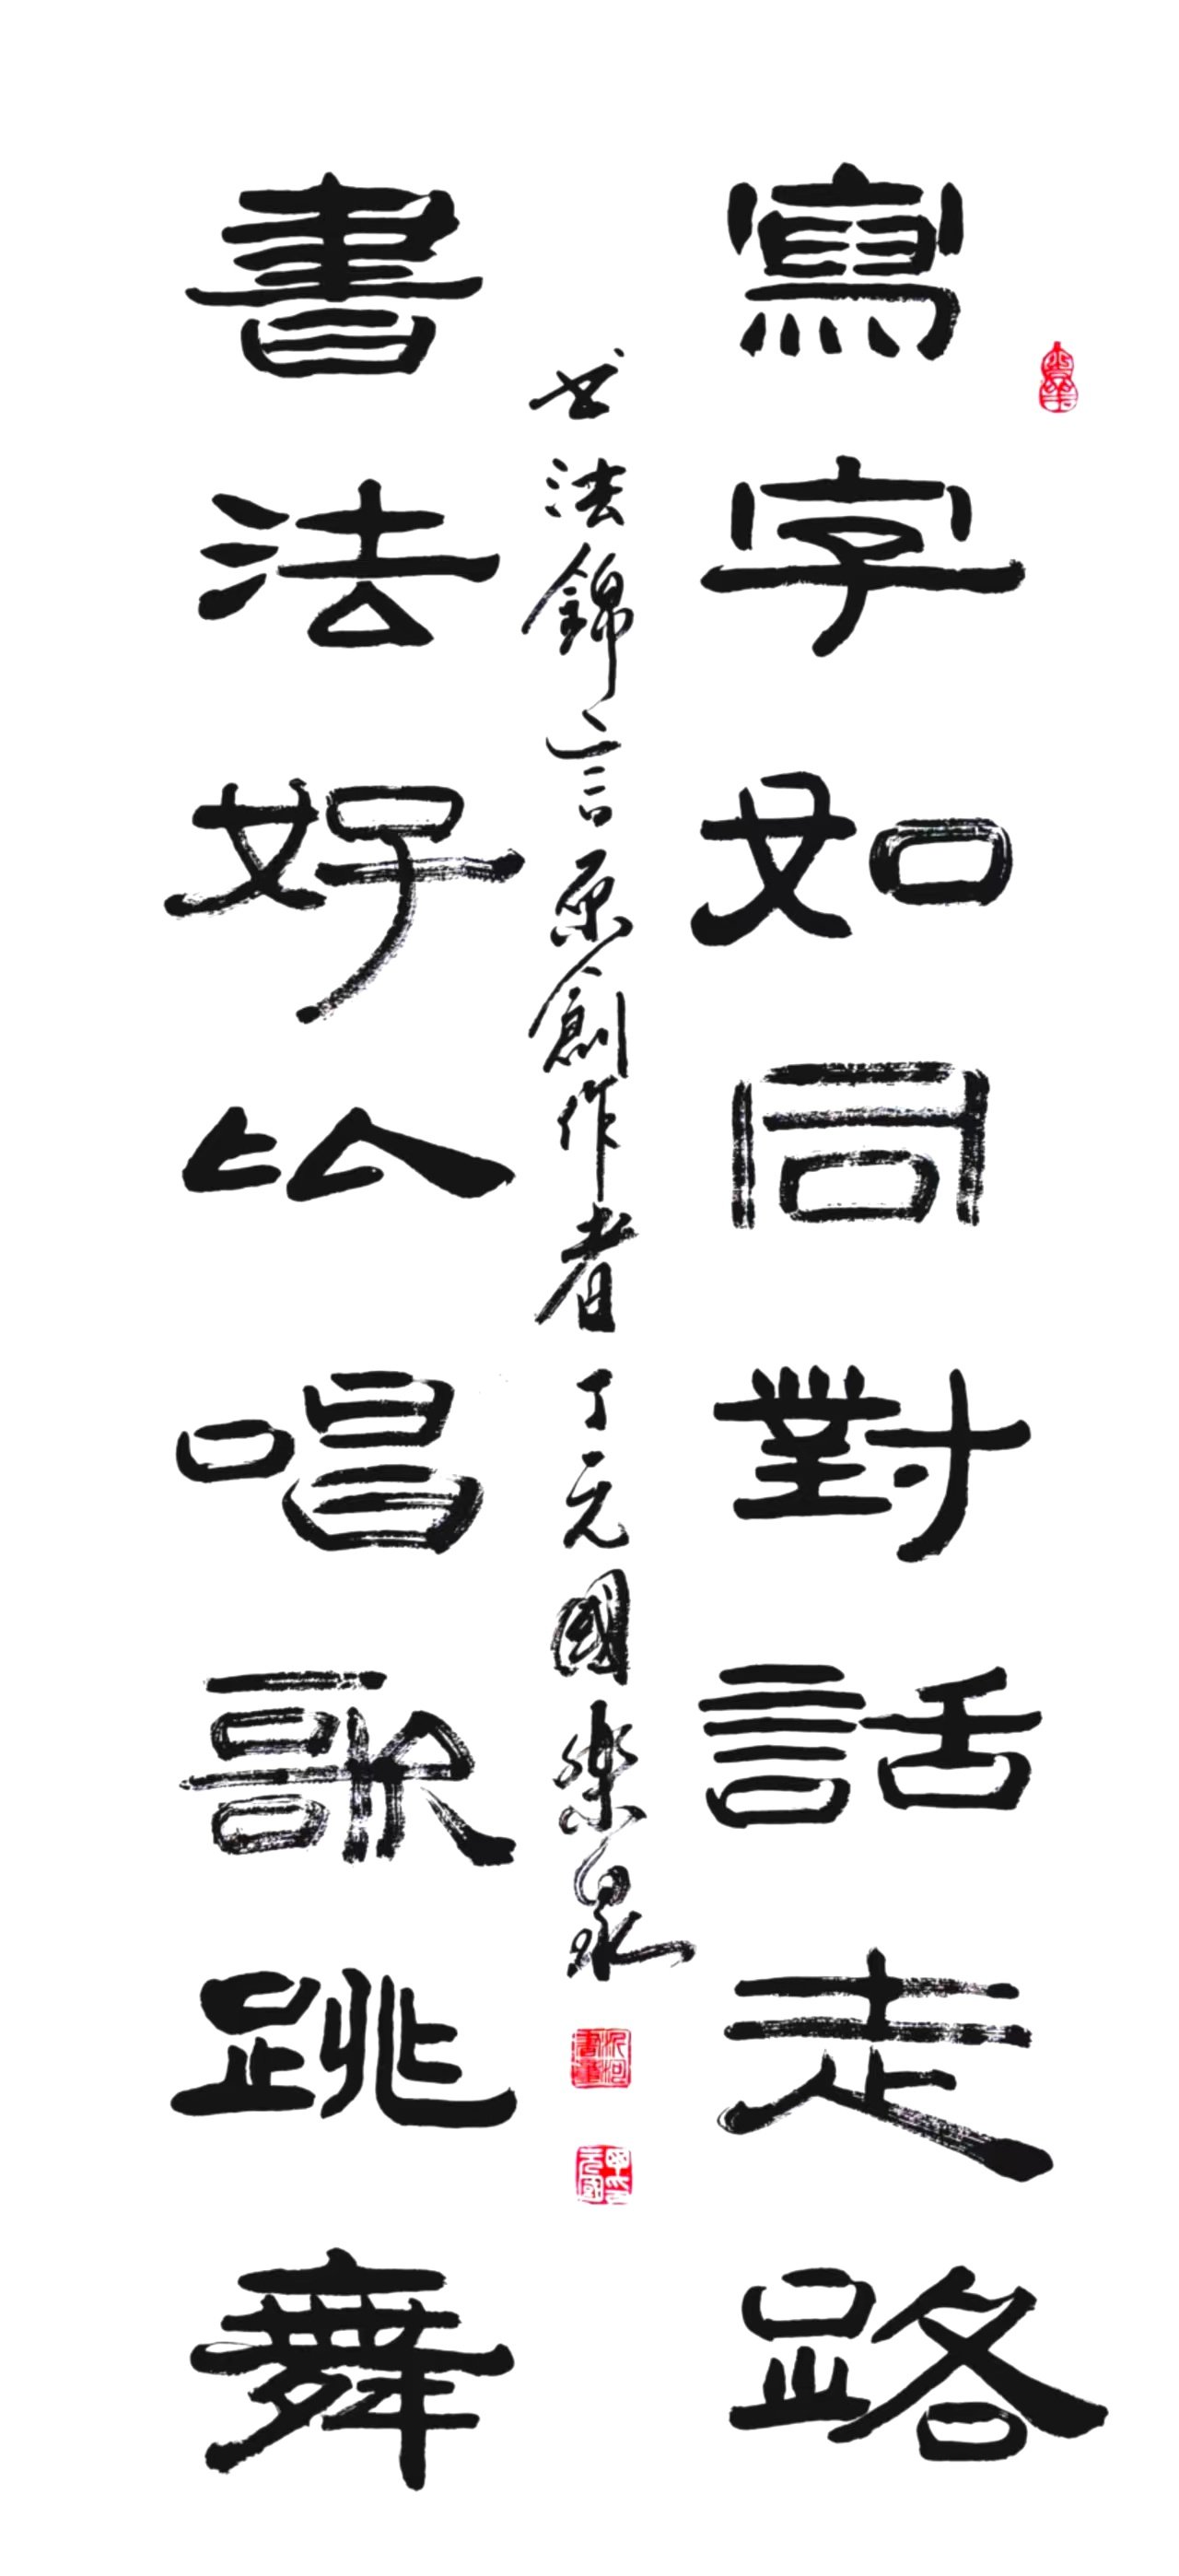 寫字如同對話走路
書法好比唱歌跳舞
书法錦言原創作者丁元國樂泉